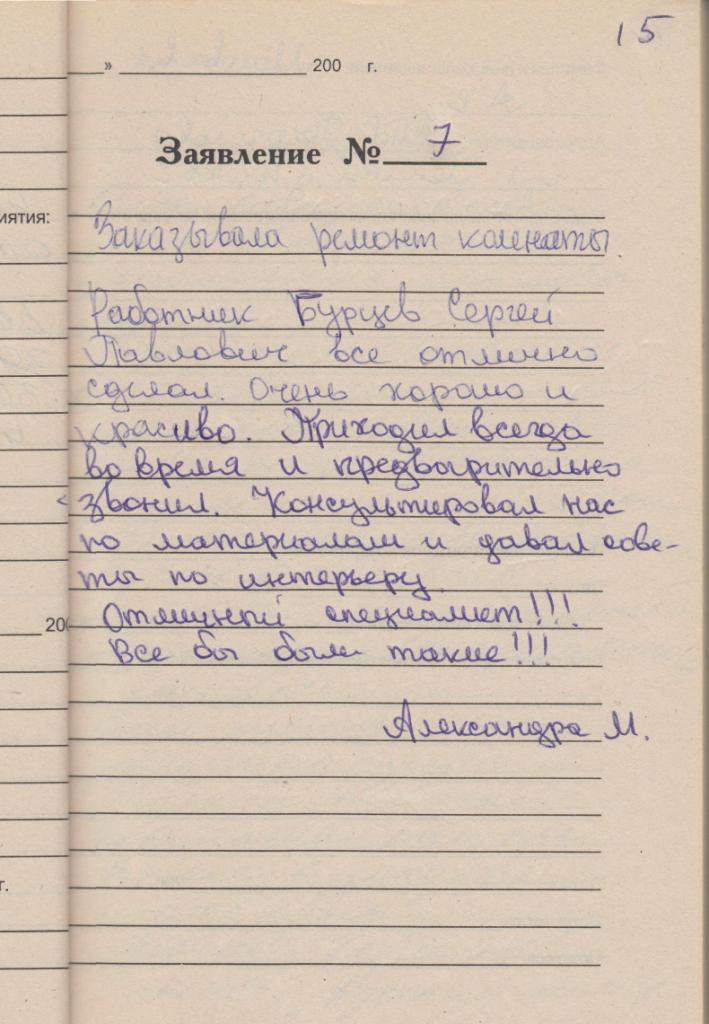 15
» 200 г.
Заявление № 7
иятия:
Заказывала ремонт комнаты
Работник Бурцев Сергей
Павлович все отлично
сделал. Очень хорошо и
красиво. Приходил всегда
во время и предварительно
звонил. Консультировал нас
по материалам и давал сове-
ты по интерьеру.
200
Отличный специалист!!!
Все бы были такие!!!
Александра М.
г.